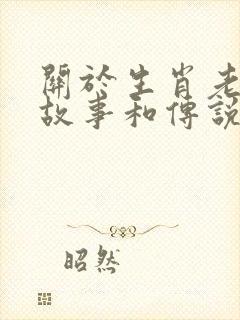 關於生肖老
故事和傳說
昭然